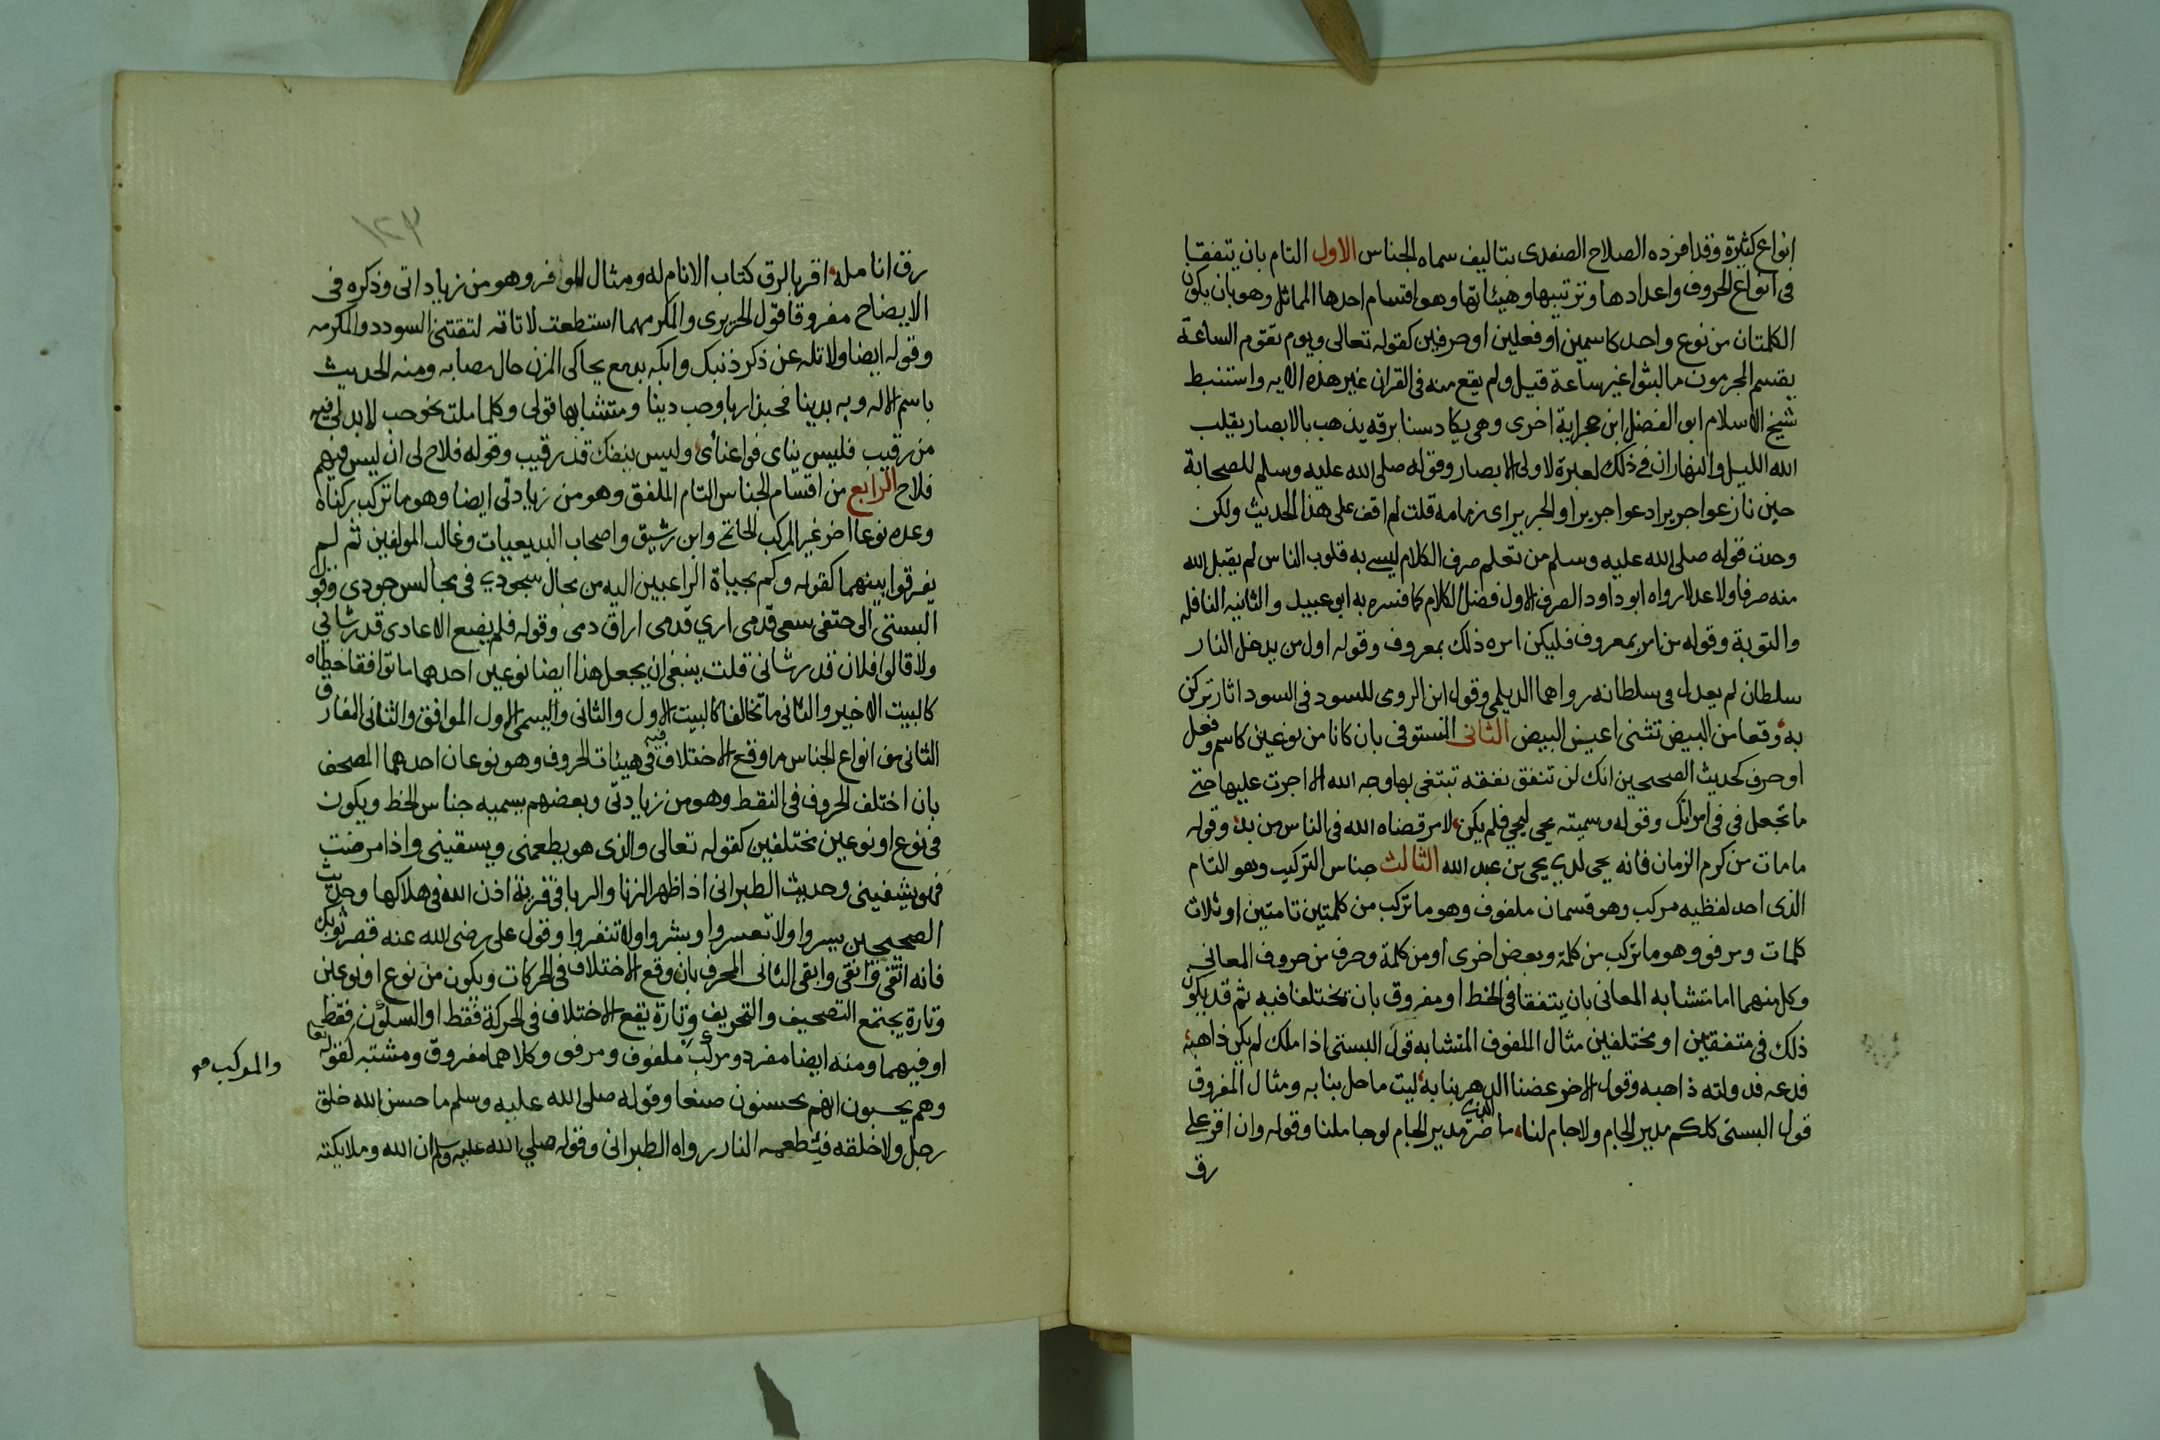 انواع كثيرة وقد افرده الصلاح الصفدى بتاليف سماه الجناس الاول التام بان يتفقا
فى انواع الحروف واعدادها وترتيبها وهيئاتها وهو اقسام احدها المماثل وهو بان يكون
الكلمتان من نوع واحد كاسمين او فعلين او حرفين كقوله تعالى ويوم تقوم الساعة
يقسم المجرمون ما لبثوا غير ساعة قيل ولم يقع منه فى القران غير هذه الايه واستنبط
شيخ الاسلام ابو الفضل ابن حجر اية اخرى وهى يكاد سنا برقه يذهب بالابصار يقلب
الله الليل والنهار ان فى ذلك لعبرة لاولى الابصار وقوله صلى الله عليه وسلم للصحابة
حين نازعوا جريرا دعوا جريرا والجرير اى زمامه قلت لم اقف على هذا الحديث ولكن
وجدت قوله صلى الله عليه وسلم من تعلم صرف الكلام ليسبى به قلوب الناس لم يقبل الله
منه صرفا ولا عدلا رواه ابو داود الصرف الاول فضل الكلام كما فسره به ابو عبيد والثانيه النافله
والتوبة وقوله من امر بمعروف فليكن امره ذلك بمعروف وقوله اول من يدخل النار
سلطان لم يعدل فى سلطانه رواهما الديلمى وقول ابن الرومى للسود فى السود اثار تركن
به وقعا من البيض تثنى اعين البيض الثانى المستوفى بان كانا من نوعين كاسم وفعل
او حرف كحديث الصحيحين انك لن تنفق نفقه تبتغى بها وجه الله الا اجرت عليها حتى
ما تجعل فى فى امراتك وقوله وسميته يحيى ليحيى فلم يكن لامر قضاه الله فى الناس من بد وقوله
ما مات من كرم الزمان فانه يحيى لدى يحيى بن عبد الله الثالث جناس التركيب وهو التام
الذى احد لفظيه مركب وهو قسمان ملفوف وهو ما تركب من كلمتين تامتين او ثلاث
كلمات ومرفو وهو ما تركب من كلمة وبعض اخرى او من كلمة وحرف من حروف المعانى
وكل منهما اما متشابه المعانى بان يتفقا فى الخط او مفروق بان يختلفا فيه ثم قد يكون
ذلك فى متفقين او مختلفين مثال الملفوف المتشابه قول البستى اذا ملك لم يكن ذا هبة
فدعه فدولته ذاهبه وقول الاخر عضنا الدهر بنابه ليت ما حل بنا به ومثال المفروق
قول البستى كلكم مدير الجام ولا جام لنا ما الذى ضر مدير الجام لو جاملنا وقوله وان اقر على
رق
١٢٣
رق انا مله اقر بالرق كتاب الانام له ومثال المرفو وهو من زياداتى وذكره فى
الايضاح مفروقا قول الحريرى والمكر مهما استطعت لا تاته لتقتنى السودد والمكرمه
وقوله ايضا ولا تله عن ذكر ذنبك وابكه بدمع يحاكى المزن حال مصابه ومنه الحديث
باسم الاله وبه بدينا فحبذا ربا وحب دينا ومتشابها قولى وكلما ملت نحو حب لابد لى فيه
من رقيب فليس يناى فواعنائ وليس ينفك قد رقيب وقوله فلاح لى ان ليس فيهم
فلاح الرابع من اقسام الجناس التام الملفق وهو من زيادتى ايضا وهو ما تركب ركناه
وعده نوعا اخر غير المركب الحاتمى وابن رشيق واصحاب البديعيات وغالب المولفين ثم لم
يفرقوا بينهما كقوله وكم بجباة الراغبين اليه من مجال سجودى فى مجالس جودى وقول
البستى الى حتفى سعى قدمى ارى قدمى اراق دمى وقوله فلم يضع الاعادى قدر شانى
ولا قالوا فلان قد رشانى قلت ينبغى ان يجعل هذا ايضا نوعين احدهما ما توافقا خطاه
كالبيت الاخير والثانى ما تخالفا كالبيت الاول والثانى واليسمى الاول الموافق والثانى الفارق
الثانى من انواع الجناس ما وقع الاختلاف فيه فى هيئات الحروف وهو نوعان احدهما المصحف
بان اختلف الحروف فى النقط وهو من زيادتى وبعضهم يسميه جناس الخط ويكون
فى نوع او نوعين مختلفين كقوله تعالى والذى هو يطعمنى ويسقينى واذا مرضت
فهو يشفينى وحديث الطبرانى اذا ظهر الزنا والربا فى قرية اذن الله فى هلاكها وحديث
الصحيحين يسروا ولا تعسروا وبشروا ولا تنفروا وقول على رضى الله عنه قصر ثوبك
فانه اتقى وانقى وابقى الثانى المحرف بان وقع الاختلاف فى الحركات ويكون من نوع او نوعين
وتارة يجتمع التصحيف والتحريف وتارة يقع الاختلاف فى الحركة فقط او السكون فقط
او فيهما ومنه ايضا مفرد ومركب ملفوف ومرفو وكلاهما مفروق ومشتبه كقوله تعالى
والمركب
وهم يحسبون انهم يحسنون صنعا وقوله صلى الله عليه وسلم ما حسن الله خلق
رجل ولا خلقه فيطعمه النار رواه الطبرانى وقوله صلى الله عليه وسلم ان الله وملايكته